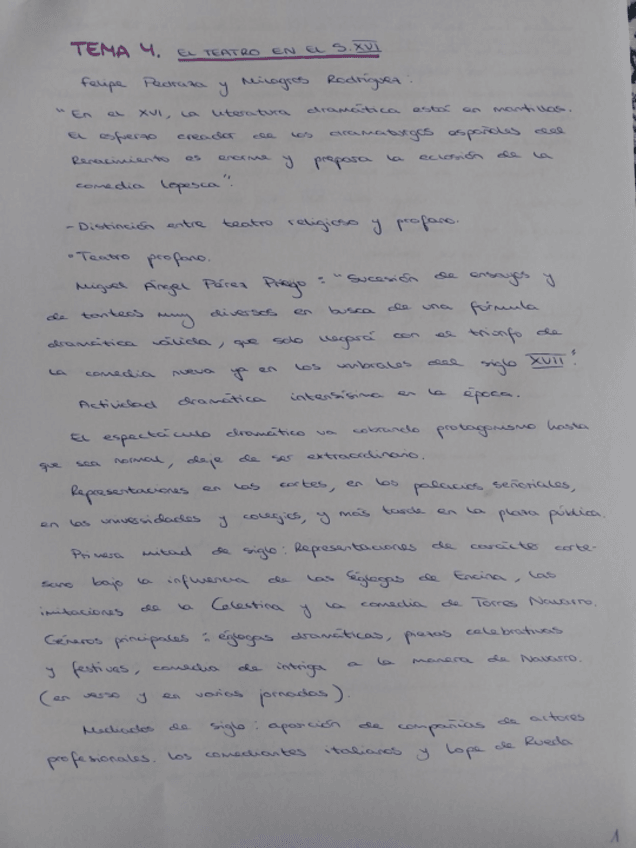 TEMA 4. EL TEATRO EN EL S. XVI
Felipe Pedraza y Milagros Rodríguez:
"En el XVI, la literatura dramática está en mantillas.
El esfuerzo creador de los dramaturgos españoles del
Renacimiento es enorme y prepara la eclosión de la
comedia lopesca".
- Distinción entre teatro religioso y profano.
• Teatro profano.
Miguel Ángel Pérez Priego: "Sucesión de ensayos y
de tanteos muy diversos en busca de una fórmula
dramática válida, que solo llegará con el triunfo de
la comedia nueva ya en los umbrales del siglo XVII".
Actividad dramática intensísima en la época.
El espectáculo dramático va cobrando protagonismo hasta
que sea normal, deje de ser extraordinario.
Representaciones en las cortes, en los palacios señoriales,
en las universidades y colegios, y más tarde en la plaza pública.
Primera mitad de siglo: Representaciones de carácter corte-
sano bajo la influencia de las Églogas de Encina, las
imitaciones de la Celestina y la comedia de Torres Navarro.
Géneros principales: églogas dramáticas, piezas celebrativas
y festivas, comedia de intriga a la manera de Navarro.
(en verso y en varias jornadas).
Mediados de siglo: aparición de compañías de actores
profesionales. Los comediantes italianos y Lope de Rueda
1